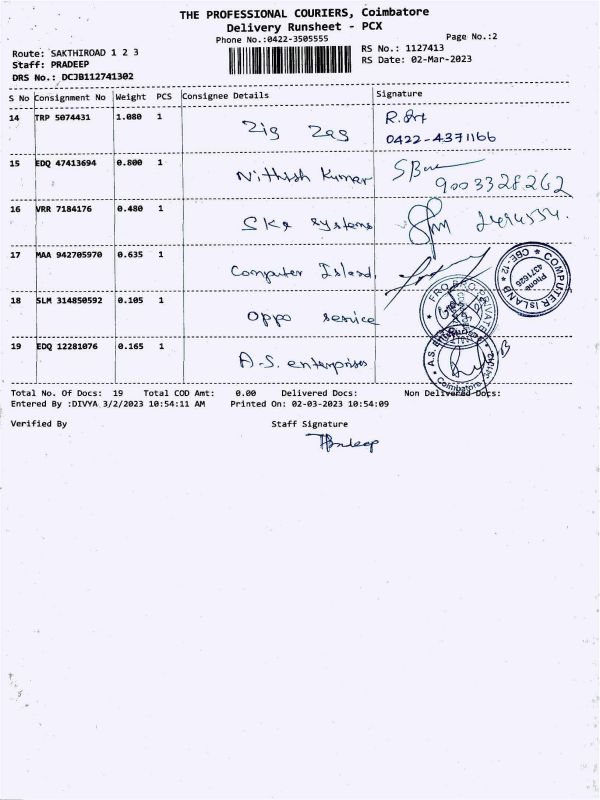 THE PROFESSIONAL COURIERS, Coimbatore
Delivery Runsheet - PCX
Phone No.:0422-3505555
Page No.:2
Route: SAKTHIROAD 1 2 3
RS No.: 1127413
Staff: PRADEEP
RS Date: 02-Mar-2023
DRS No.: DCJB112741302
S No Consignment No Weight PCS Consignee Details Signature
14 TRP 5074431 1.080 1 Zig Zag
0422-4371166
15 EDQ 47413694 0.800 1 Nithish Kumar
9003328262
16 VRR 7184176 0.480 1 SKS Systems
17 MAA 942705970 0.635 1 Computer Island,
COMPUTER ISLAND * CBE-12 *
Phone
4371626
18 SLM 314850592 0.105 1 oppo service
19 EDQ 12281076 0.165 1 A.S. enterprises
Coimbatore
Total No. Of Docs: 19 Total COD Amt: 0.00 Delivered Docs: Non Delivered Docs:
Entered By :DIVYA 3/2/2023 10:54:11 AM Printed On: 02-03-2023 10:54:09
Verified By Staff Signature